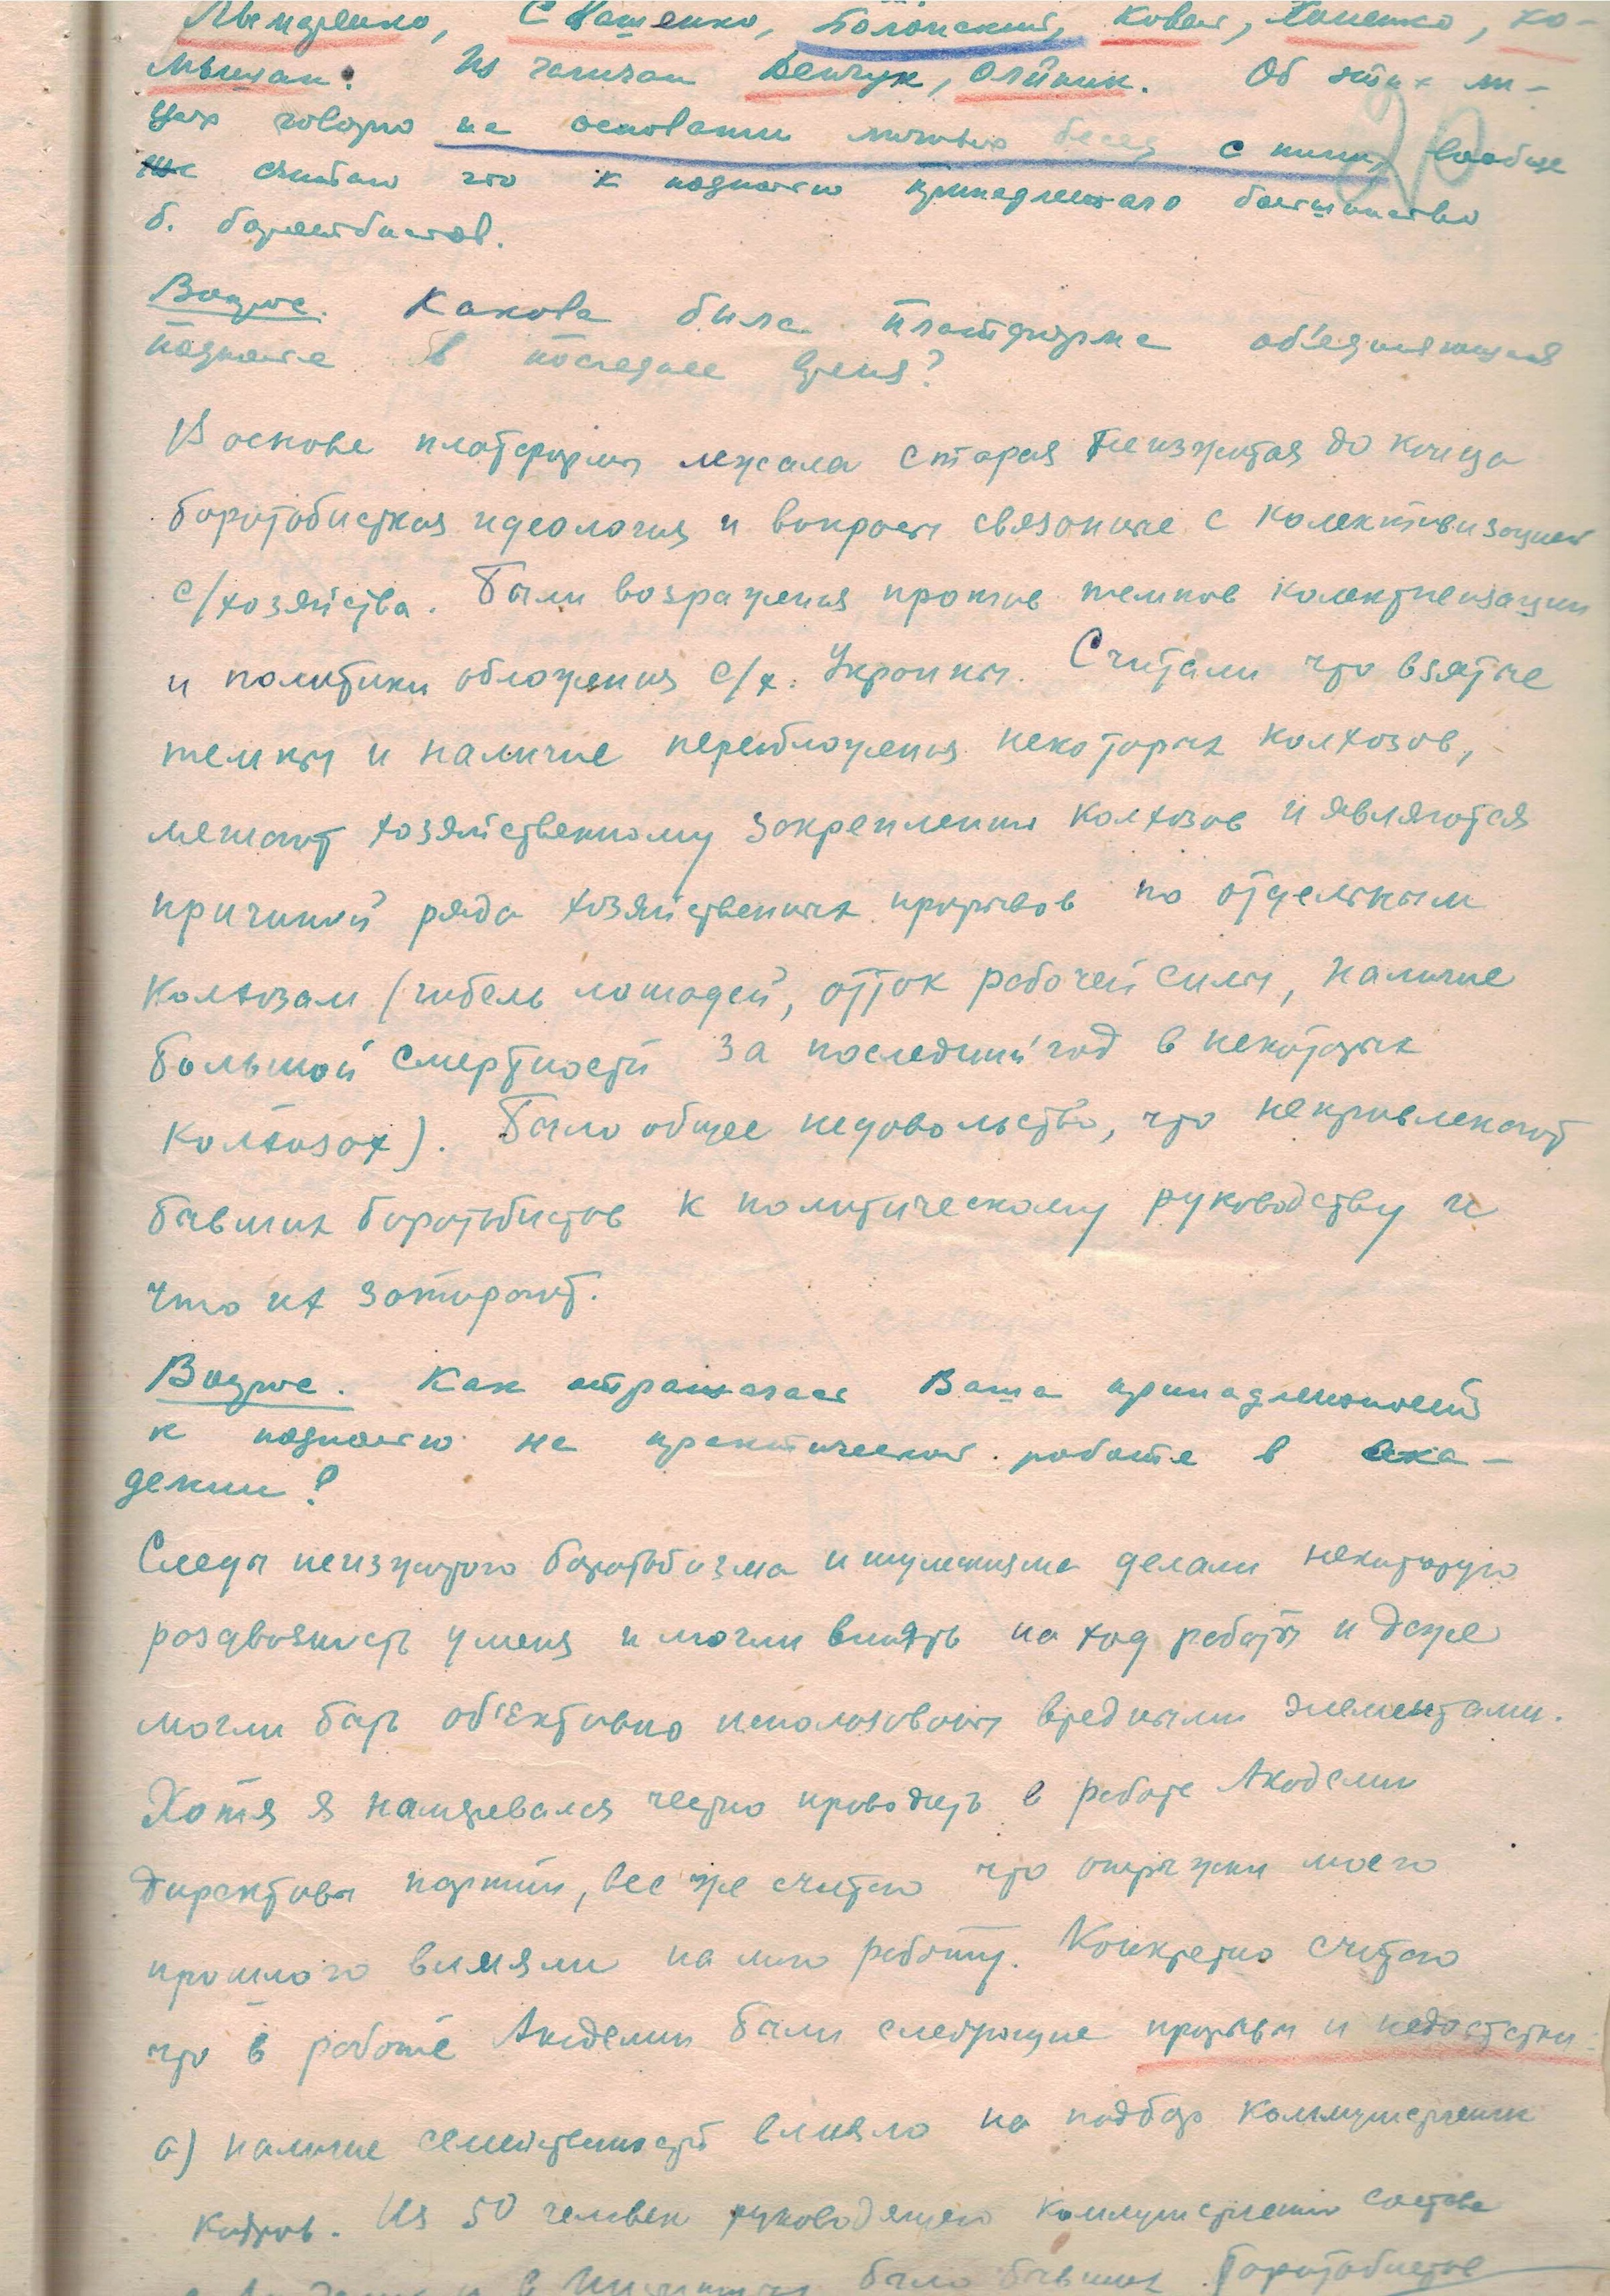 С Маценко, Полонский, Ковал,
Из галичан Демчук, Олійник. Об этих ли-
цах говорю на основании личных бесед с ними, вообще
же считаю что к подполью принадлежало большинство
б. боротьбистов.
Вопрос. Какова была платформа об'единяющая
подполье в последнее время?
В основе платформы лежала старая неизжитая до конца
боротьбистская идеология и вопросы связаные с колективизацией
с/хозяйства. Были возражения против темпов колективизации
и политики обложения с/х. Украины. Считали что взятые
темпы и наличие переобложения некоторых колхозов,
мешают хозяйственному закреплению колхозов и являются
причиной ряда хозяйственных прорывов по отдельным
колхозам (гибель лошадей, отток рабочей силы, наличие
большой смертности за последний год в некоторых
колхозах). Было общее недовольство, что непривлекают
бывших боротьбистов к политическому руководству и
что их затирают.
Вопрос. Как отражалась Ваша принадлежность
к подполью на практической работе в ака-
демии?
Следы неизжитого боротьбизма и шумскизма делали некоторую
раздвояность у меня и могли влиять на ход работы и даже
могли быть об'ективно использованы вредными элементами.
Хотя я намеревался честно проводить в работе Академии
директивы партии, все же считаю что отрыжки моего
прошлого влияли на мою работу. Конкретно считаю
что в работе Академии были следующие прорывы и недостатки:
а) наличие семейственности влияло на подбор коммунистических
кадров. Из 50 человек руководящего коммунистического состава
в было бывших боротьбистов